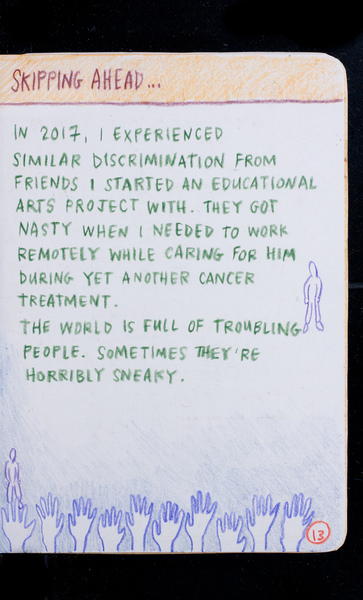 SKIPPING AHEAD...
IN 2017, I EXPERIENCED
SIMILAR DISCRIMINATION FROM
FRIENDS I STARTED AN EDUCATIONAL
ARTS PROJECT WITH. THEY GOT
NASTY WHEN I NEEDED TO WORK
REMOTELY WHILE CARING FOR HIM
DURING YET ANOTHER CANCER
TREATMENT.
THE WORLD IS FULL OF TROUBLING
PEOPLE. SOMETIMES THEY'RE
HORRIBLY SNEAKY.
13